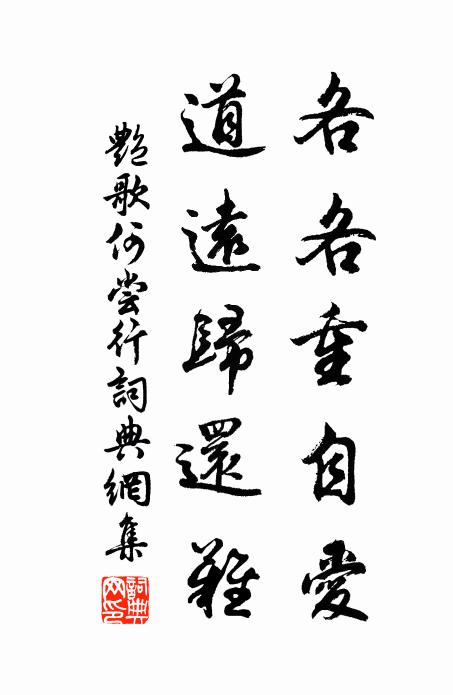 各各重自愛
道遠歸還難
艷歌何嘗行詞典網集
詞典網印